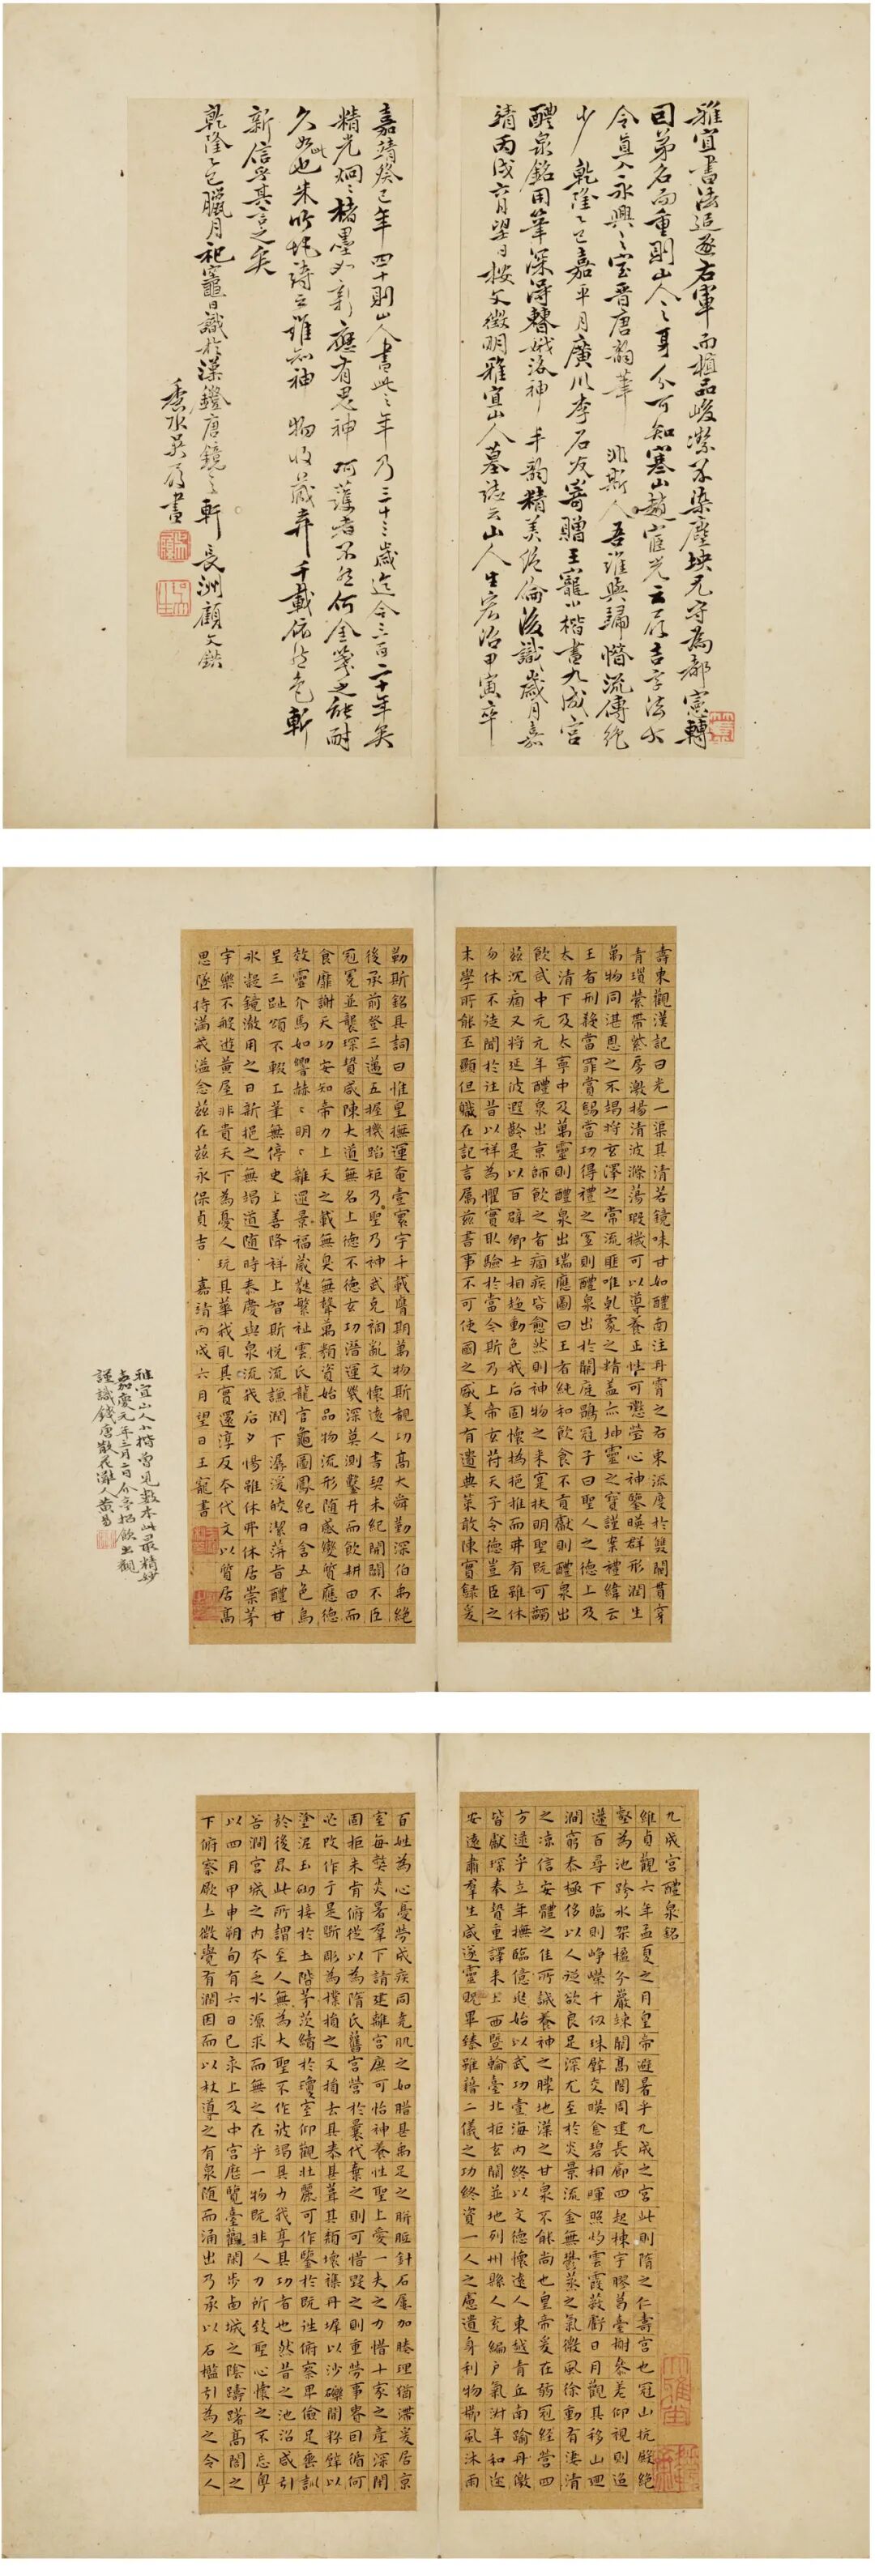 雅宜書法追逐右軍而植品峻潔不染塵埃尤守為都憲轉
司弟名而重則山人之身分可知寒山趙宦光云履吉字法大
令真入永興之室晉唐韵 非斯人吾誰與歸惜流傳絕
少 乾隆乙巳嘉平月廣川李石友寄贈王寵小楷書九成宮
醴泉銘用筆深得 娥洛神丰韵精美絕倫後識歲月嘉
靖丙戌六月望日按文徵明雅宜山人墓誌云山人生宏治甲寅卒
嘉靖癸巳年四十則山人書此之年乃三十三歲迄今 百二十年矣
精光炯炯楮墨如新應有鬼神呵護者不然何金箋之能耐
久如此也朱竹垞詩云誰知神物收藏弆千載依然色嶄
新信乎其言之矣
乾隆乙巳臘月祀竈日識於漢鐙唐鏡之軒 長洲顧文鉷
秀水吳履書
壽東觀漢記曰光一渠其清若鏡味甘如醴南注丹霄之右東流度於雙闕貫穿
青瑣縈帶紫房激揚清波滌蕩瑕穢可以導養正性可澂瑩心神鑒暎群形潤生
萬物同湛恩之不竭將玄澤之常流匪唯乹象之精盖亦坤靈之寶謹案禮緯云
王者刑殺當罪賞賜當功得禮之宜則醴泉出於闕庭鶡冠子曰聖人之德上及
太清下及太寧中及萬靈則醴泉出瑞應圖曰王者純和飲食不貢獻則醴泉出
飲武中元元年醴泉出京師飲之者痼疾皆愈然則神物之来寔扶明聖既可蠲
茲沉痼又將延彼遐齡是以百辟卿士相趨動色我后固懷撝挹推而弗有雖休
勿休不徒聞於往昔以祥為懼實取驗於當今斯乃上帝玄符天子令德豈臣之
末學所能丕顯但職在記言屬茲書事不可使國之盛美有遺典策敢陳實錄爰
勒斯銘其詞曰惟皇撫運奄壹寰宇千載膺期萬物斯覩功高大舜勤深伯禹絕
後承前登三邁五握機蹈矩乃聖乃神武克禍亂文懷遠人書契未紀開闢不臣
冠冕並襲琛贄咸陳大道無名上德不德玄功潛運幾深莫測鑿井而飲耕田而
食靡謝天功安知帝力上天之載無臭無聲萬類資始品物流形随感變質應德
效靈介焉如響赫赫明明雜遝景福葳蕤繁祉雲氏龍官龜圖鳳紀日含五色烏
呈三趾頌不輟工筆無停史上善降祥上智斯悅流謙潤下潺湲皎潔蓱旨醴甘
氷凝鏡澈用之日新挹之無竭道随時泰慶與泉流我后夕惕雖休弗休居崇茅
宇樂不般遊黃屋非貴天下為憂人玩其華我取其實還淳反本代文以質居高
思墜持滿戒溢念茲在茲永保貞吉 嘉靖丙戌六月望日王寵書
雅宜山人小楷曾見數本此最精妙
嘉慶元年三月二日介亭招飲出觀
謹識錢唐散花灘人黃易
九成宮醴泉銘
維貞觀六年孟夏之月皇帝避暑乎九成之宮此則隋之仁壽宮也冠山抗殿絕
壑為池跨水架楹分巖竦闕高閣周建長廊四起棟宇膠葛臺榭參差仰視則迢
遞百尋下臨則崢嶸千仞珠壁交暎金碧相暉照灼雲霞蔽虧日月觀其移山迴
澗窮泰極侈以人從欲良足深尤至於炎景流金無鬱蒸之氣微風徐動有淒清
之凉信安體之佳所誠養神之勝地漢之甘泉不能尚也皇帝爰在弱冠經營四
方逮乎立年撫臨億兆始以武功壹海內終以文德懷遠人東越青丘南踰丹徼
皆獻琛奉贄重譯来王西暨輪臺北拒玄闕並地列州縣人充編户氣淑年和迩
安遠肅羣生咸遂靈貺畢臻雖藉二儀之功終資一人之慮遺身利物櫛風沐雨
百姓為心憂勞成疾同堯肌之如腊甚禹足之胼胝針石屢加腠理猶滯爰居京
室每弊炎暑羣下請建離宮庶可怡神養性聖上愛一夫之力惜十家之產深閉
固拒未肯俯從以為隋氏舊宮營於曩代棄之則可惜毀之則重勞事貴因循何
必改作于是斲彫為樸損之又損去其泰甚葺其頹壞雜丹墀以沙礫間粉壁以
塗泥玉砌接於土階茅茨續於瓊室仰觀壯麗可作鑒於既往俯察卑儉足垂訓
於後昆此所謂至人無為大聖不作彼竭其力我享其功者也然昔之池沼咸引
谷澗宮城之內本乏水源求而無之在乎一物既非人力所致聖心懷之不忘粵
以四月甲申朔旬有六日己亥上及中宮歷覽臺觀閑步西城之陰躊躇高閣之
下俯察厥土微覺有潤因而以杖導之有泉随而涌出乃承以石檻引為之令人